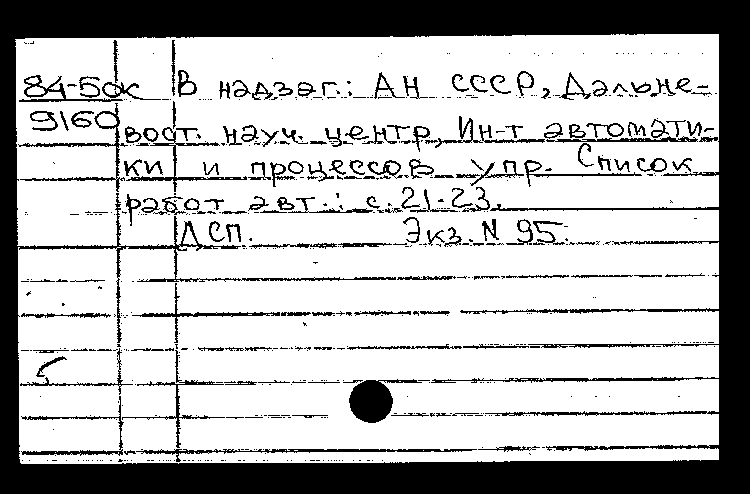 84-5ок В надзаг.: АН СССР, Дальне-
9160 вост. науч. центр, Ин-т автомати-
ки и процессов упр. Список
работ авт.: с. 21-23.
ДСП. Экз. N 95.
5